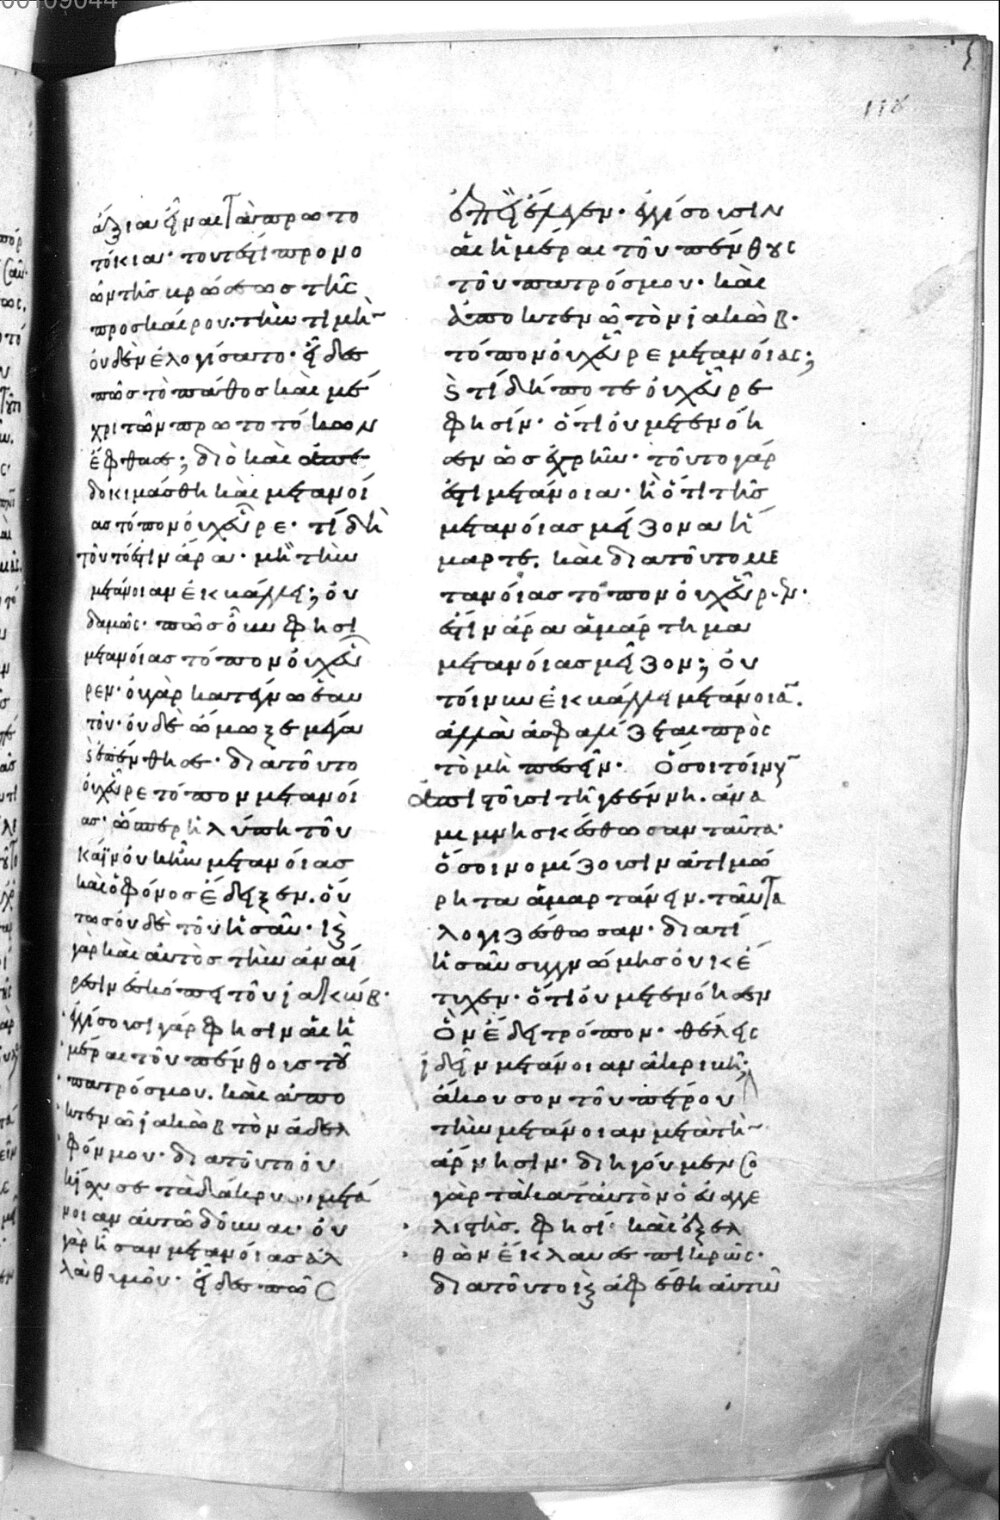 00109044
118
ἄξιαν εἶναι τὰ πρωτο
τόκια· τουτέστι προμο
ὼν τῆς κρώσεως τῆς
προσκαίρου. τὴν τιμὴν
οὐδὲν ἐλογίσατο· εἶδες
πῶς τὸ πάθος καὶ μέ
χρι τῶν πρωτοτόκων
ἔφθασε; διὸ καὶ ἀπε
δοκιμάσθη καὶ μετανοί
ας τόπον οὐχ εὗρε· τί δὴ
τοῦτό ἐστιν ἄρα· μὴ τὴν
μετάνοιαν ἐκβάλλει; οὐ
δαμῶς· πῶς οὖν φησι
μετανοίας τόπον οὐχ εὗ
ρεν· οὐ γὰρ κατέγνω ἑαυ
τοῦ· οὐδὲ ὤμωξε μέγα
ἐπένθησε· διὰ τοῦτο
οὐχ εὗρε τόπον μετανοί
ας· ὥσπερ ἡ λύπη τοῦ
κάϊν οὐκ ἦν μετανοίας
καὶ ὁ φόνος ἔδειξεν. οὕ
τως οὐδὲ τοῦ ἠσαῦ·
γὰρ καὶ αὐτὸς τὴν ἀναί
ρεσιν ἐσκόπει τοῦ ἰακώβ·
ἐγγίσουσι γάρ φησιν αἱ ἡ
μέραι τοῦ πένθους τοῦ
πατρός μου. καὶ ἀπο
κτενῶ ἰακὼβ τὸν ἀδελ
φόν μου· διὰ τοῦτο οὐκ
ἴσχυσε τὰ δάκρυα μετά
νοιαν αὐτῷ δοῦναι· οὐ
γὰρ ἦσαν μετανοίας ἀλ
λὰ θυμοῦ· εἶδες πῶς
ὅλπις ἔμεν· ἐγγίσουσιν
αἱ ἡμέραι τοῦ πένθους
τοῦ πατρός μου· καὶ
ἀποκτενῶ τὸν ἰακώβ·
τόπον οὐχ εὗρε μετανοίας;
τί δήποτε οὐχ εὗρε
φησίν· ὅτι οὐ μετενόη
σεν ὡς ἐχρῆν· τοῦτο γάρ
ἐστι μετάνοια· ἢ ὅτι τῆς
μετανοίας μείζονα ἥ
μαρτε. καὶ διὰ τοῦτο με
τανοίας τόπον οὐχ εὗρεν·
ἔστιν ἄρα ἁμάρτημα
μετανοίας μεῖζον; οὐ
τοίνυν ἐκβάλλει μετάνοιαν.
ἀλλὰ ἀσφαλίζεται πρὸς
τὸ μὴ πεσεῖν· ὅσοι τοίνυν
ἀπιστοῦσι τῇ γεέννῃ. ἀνα
μεμνησκέσθωσαν ταῦτα·
ὅσοι νομίζουσιν ἀτιμώ
ρητα ἁμαρτάνειν. ταῦτα
λογιζέσθωσαν· διατί
ἠσαῦ συγγνώμης οὐκ ἐ
τυχεν· ὅτι οὐ μετενόησεν
ὃν ἔδει τρόπον· θέλεις
ἰδεῖν μετάνοιαν ἀκριβῆ;
ἄκουσον τοῦ πέτρου
τὴν μετάνοιαν μετὰ τὴν
ἄρνησιν· διηγούμενος
γὰρ τὰ κατ᾽ αὐτὸν ὁ εὐαγγε
λιστὴς. φησί· καὶ ἐξελ
θὼν ἔκλαυσε πικρῶς·
διὰ τοῦτο ἀφέθη αὐτῷ